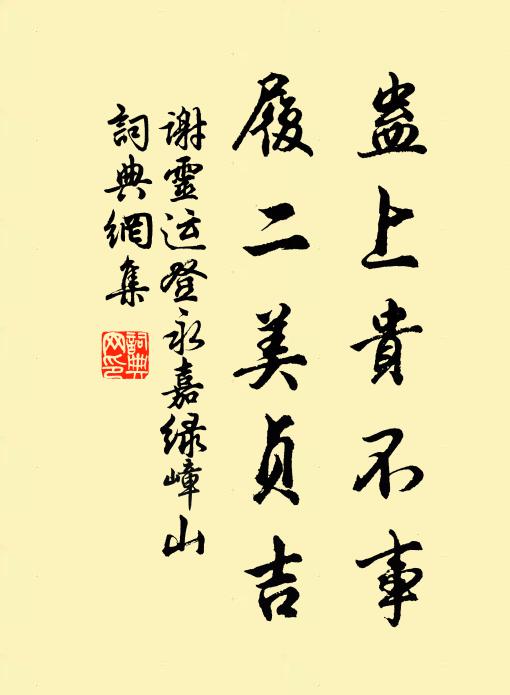 蠱上貴不事
履二美貞吉
谢靈运登永嘉绿嶂山
詞典網集
詞典网印